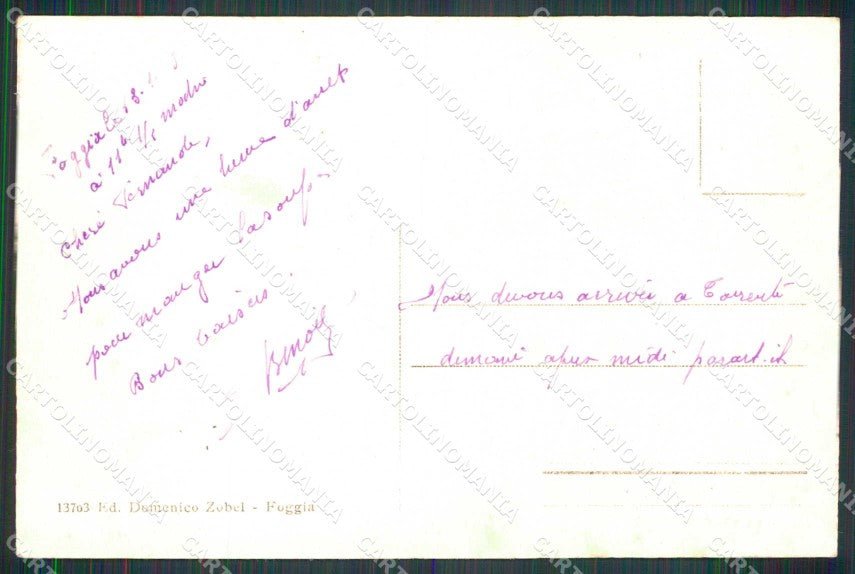 Foggia le 3.
à 11h 1/2
Chère Fernande,
Nous avons une heure d'arrêt
pour manger la soupe
Bons baisers.
Benoit
Nous devons arriver a Tarente
demain apres midi parait-il
13703 Ed. Domenico Zobel - Foggia
CARTOLINOMANIA